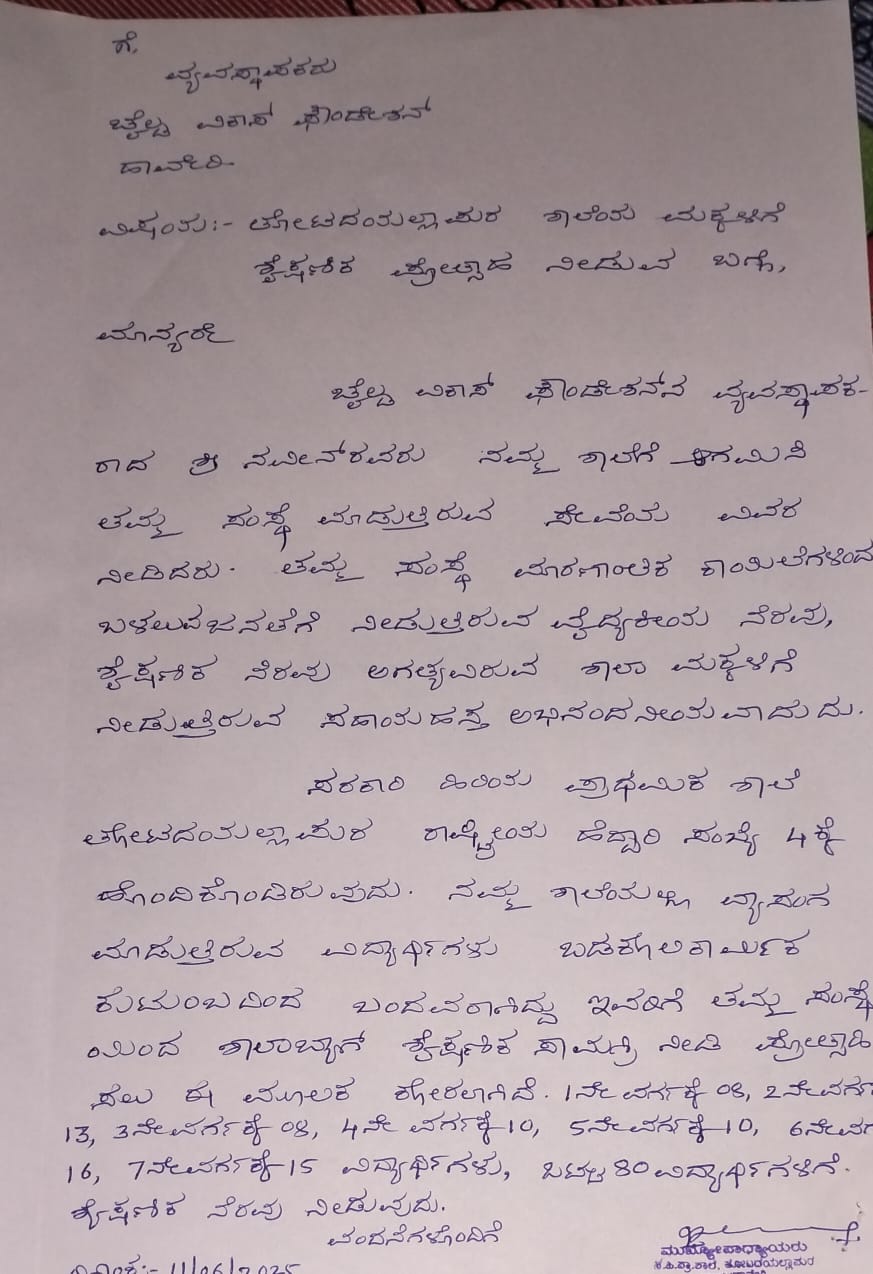 ಗೆ,
ವ್ಯವಸ್ಥಾಪಕರು
ಚೈಲ್ಡ ವಿಕಾಸ್ ಫೌಂಡೇಶನ್
ಹಾವೇರಿ
ವಿಷಯ:- ತೋಟದಯಲ್ಲಾಪುರ ಶಾಲೆಯ ಮಕ್ಕಳಿಗೆ
ಶೈಕ್ಷಣಿಕ ಪ್ರೋತ್ಸಾಹ ನೀಡುವ ಬಗ್ಗೆ,
ಮಾನ್ಯರೇ
ಚೈಲ್ಡ ವಿಕಾಸ್ ಫೌಂಡೇಶನ್‌ನ ವ್ಯವಸ್ಥಾಪಕ-
ರಾದ ಶ್ರೀ ನವೀನ್‌ರವರು ನಮ್ಮ ಶಾಲೆಗೆ ಆಗಮಿಸಿ
ತಮ್ಮ ಸಂಸ್ಥೆ ಮಾಡುತ್ತಿರುವ ಸೇವೆಯ ವಿವರ
ನೀಡಿದರು. ತಮ್ಮ ಸಂಸ್ಥೆ ಮಾರಣಾಂತಿಕ ಕಾಯಿಲೆಗಳಿಂದ
ಬಳಲುವ ಜನತೆಗೆ ನೀಡುತ್ತಿರುವ ವೈದ್ಯಕೀಯ ನೆರವು,
ಶೈಕ್ಷಣಿಕ ನೆರವು ಅಗತ್ಯವಿರುವ ಶಾಲಾ ಮಕ್ಕಳಿಗೆ
ನೀಡುತ್ತಿರುವ ಸಹಾಯ ಹಸ್ತ ಅಭಿನಂದನೀಯವಾದುದು.
ಸರಕಾರಿ ಹಿರಿಯ ಪ್ರಾಥಮಿಕ ಶಾಲೆ
ತೋಟದಯಲ್ಲಾಪುರ ರಾಷ್ಟ್ರೀಯ ಹೆದ್ದಾರಿ ಸಂಖ್ಯೆ 4ಕ್ಕೆ
ಹೊಂದಿಕೊಂಡಿರುವುದು. ನಮ್ಮ ಶಾಲೆಯಲ್ಲಿ ವ್ಯಾಸಂಗ
ಮಾಡುತ್ತಿರುವ ವಿದ್ಯಾರ್ಥಿಗಳು ಬಡಕೂಲಿಕಾರ್ಮಿಕ
ಕುಟುಂಬದಿಂದ ಬಂದವರಾಗಿದ್ದು ಇವರಿಗೆ ತಮ್ಮ ಸಂಸ್ಥೆ
ಯಿಂದ ಶಾಲಾಬ್ಯಾಗ್ ಶೈಕ್ಷಣಿಕ ಸಾಮಗ್ರಿ ನೀಡಿ ಪ್ರೋತ್ಸಾಹಿ
ಸಲು ಈ ಮೂಲಕ ಕೋರಲಾಗಿದೆ. 1ನೇ ವರ್ಗಕ್ಕೆ 08, 2ನೇ ವರ್ಗ
13, 3ನೇ ವರ್ಗಕ್ಕೆ 08, 4ನೇ ವರ್ಗಕ್ಕೆ 10, 5ನೇ ವರ್ಗಕ್ಕೆ 10, 6ನೇ ವರ್ಗ
16, 7ನೇ ವರ್ಗಕ್ಕೆ 15 ವಿದ್ಯಾರ್ಥಿಗಳು, ಒಟ್ಟು 80 ವಿದ್ಯಾರ್ಥಿಗಳಿಗೆ.
ಶೈಕ್ಷಣಿಕ ನೆರವು ನೀಡುವುದು.
ವಂದನೆಗಳೊಂದಿಗೆ
ಮುಖ್ಯೋಪಾಧ್ಯಾಯರು
ಸ.ಹಿ.ಪ್ರಾ.ಶಾಲೆ, ತೋಟದಯಲ್ಲಾಪುರ
ದಿನಾಂಕ:- 11/06/2025